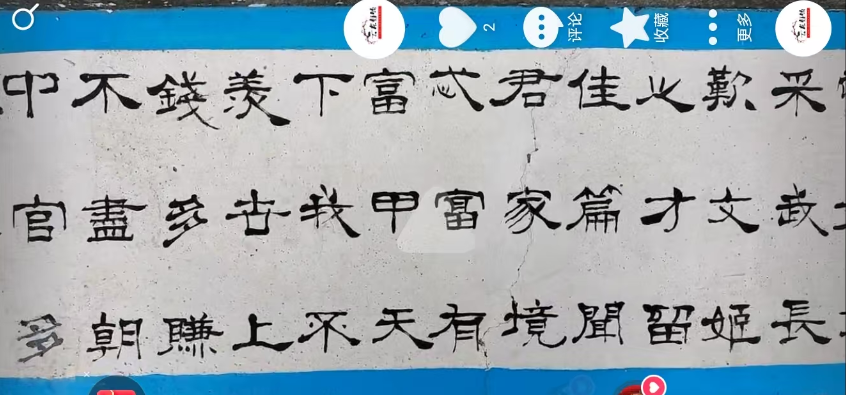 采武長
歎文姬
之才留
佳篇聞
君家境
忒富有
富甲天
下我不
羨古上
錢多賺
不盡朝
中官多
2
评论
收藏
更多